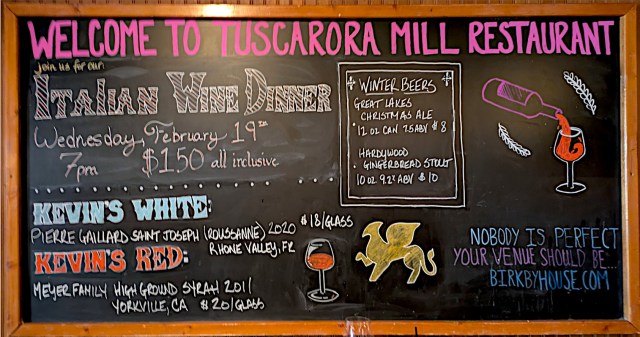 WELCOME TO TUSCARORA MILL RESTAURANT
join us for our:
ITALIAN WINE DINNER
Wednesday, February 19th
7pm $150 all inclusive
WINTER BEERS
GREAT LAKES
CHRISTMAS ALE
12 OZ CAN 7.5ABV $8
HARDYWOOD
GINGERBREAD STOUT
10 OZ 9.2% ABV $10
KEVIN'S WHITE:
PIERRE GAILLARD SAINT JOSEPH (ROUSSANNE) 2020 $18/GLASS
RHONE VALLEY, FR
KEVIN'S RED:
MEYER FAMILY HIGH GROUND SYRAH 2011
YORKVILLE, CA $20/GLASS
NOBODY IS PERFECT
YOUR VENUE SHOULD BE...
BIRKBYHOUSE.COM